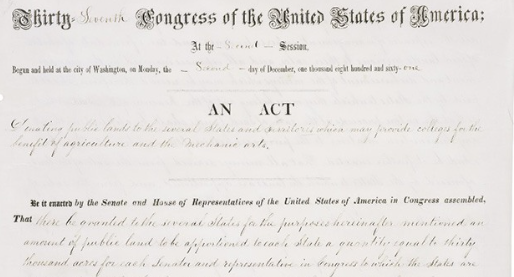 Thirty-Seventh Congress of the United States of America;
At the Second Session,
Begun and held at the city of Washington, on Monday, the Second day of December, one thousand eight hundred and sixty-one
AN ACT
Donating public lands to the several States and Territories which may provide colleges for the
benefit of agriculture and the Mechanic arts.
Be it enacted by the Senate and House of Representatives of the United States of America in Congress assembled,
That there be granted to the several States for the purposes hereinafter mentioned an
amount of public land to be apportioned to each State a quantity equal to thirty
thousand acres for each Senator and representative in Congress to which the States are